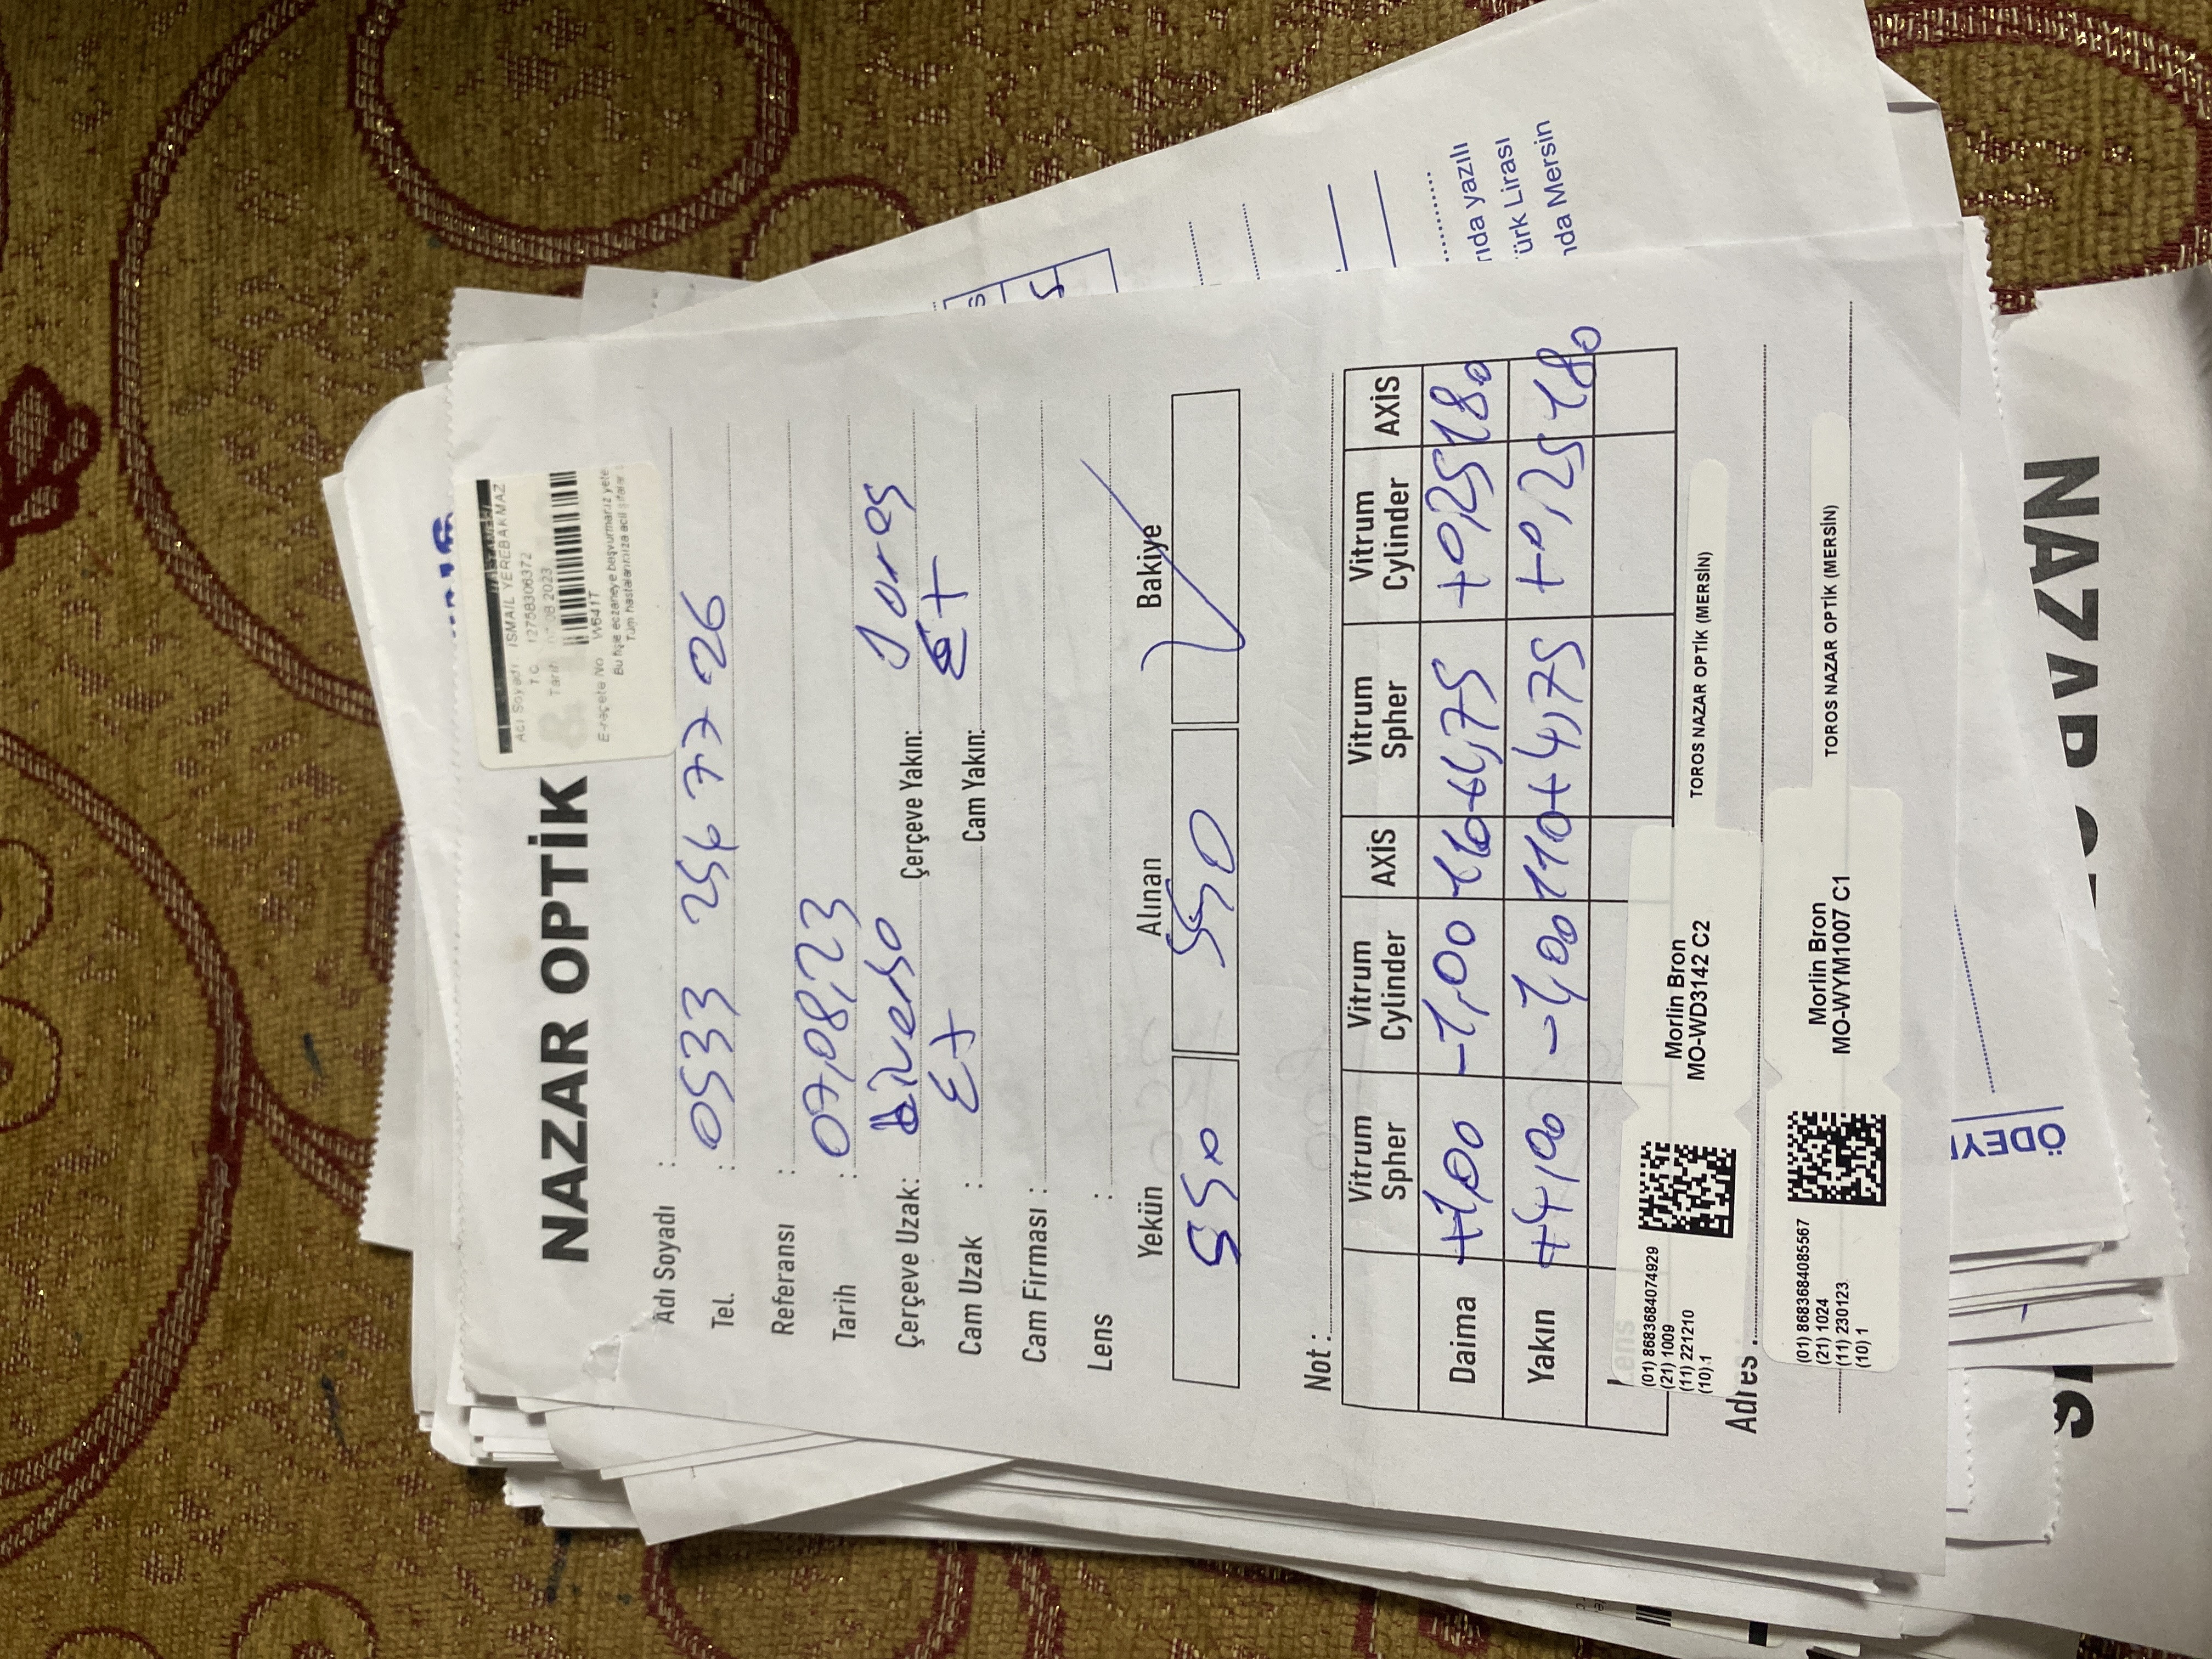 NAZAR OPTİK
HASTANESİ
Adı Soyadı : İSMAİL YEREBAKMAZ
T.C. 12758306372
Tarih 07.08.2023
E-reçete No W641T
Bu fişle eczaneye başvurmanız yete
Tüm hastalarımıza acil şifalar
Adı Soyadı :
Tel. : 0533 256 77 26
Referansı :
Tarih : 07,08,23
Çerçeve Uzak: Çerçeve Yakın:
Cam Uzak : Ex Cam Yakın: Ex
Cam Firması :
Lens :
Yekün Alınan Bakiye
550 550
Not :
Vitrum Spher Vitrum Cylinder AXİS Vitrum Spher Vitrum Cylinder AXİS
Daima +1,00 -1,00 110 +1,75 +0,25 180
Yakın +4,00 -1,00 110 +4,75 +0,25 180
Lens
(01) 8683684074929
(21) 1009
(11) 221210
(10) 1
Morlin Bron
MO-WD3142 C2
TOROS NAZAR OPTİK (MERSİN)
Adres :
(01) 8683684085567
(21) 1024
(11) 230123
(10) 1
Morlin Bron
MO-WYM1007 C1
TOROS NAZAR OPTİK (MERSİN)
rıda yazılı
ürk Lirası
nda Mersin
ÖDEYE
NAZAR